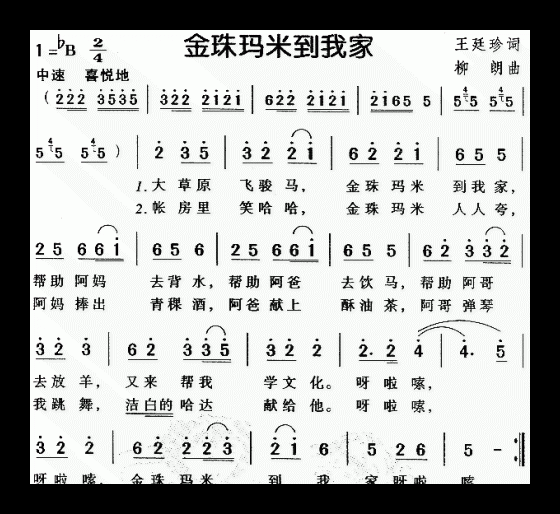 金珠玛米到我家
1=♭B 2/4
王廷珍词
中速 喜悦地
柳朗曲
(222 3535 | 322 2121 | 622 2121 | 2165 5 | 5 4 5 5 4 5
5 4 5 5 4 5 ) | 2 3 5 | 3 2 2 1 | 6 2 2 1 | 6 5 5
1.大草原 飞骏马, 金珠玛米 到我家,
2.帐房里 笑哈哈, 金珠玛米 人人夸,
2 5 6 6 1 | 6 5 6 | 2 5 6 6 1 | 5 5 5 | 6 2 3 3 2
帮助阿妈 去背水, 帮助阿爸 去饮马, 帮助阿哥
阿妈捧出 青稞酒, 阿爸献上 酥油茶, 阿哥弹琴
3 2 3 | 6 2 3 3 5 | 3 2 2 | 2. 2 4 | 4. 5
去放羊, 又来帮我 学文化。 呀啦嗦,
我跳舞, 洁白的哈达 献给他。 呀啦嗦,
3 2 2 | 6 2 2 2 3 | 2 1 6 | 5 2 6 | 5 - :‖
呀啦嗦, 金珠玛米 到我 家呀啦 嗦